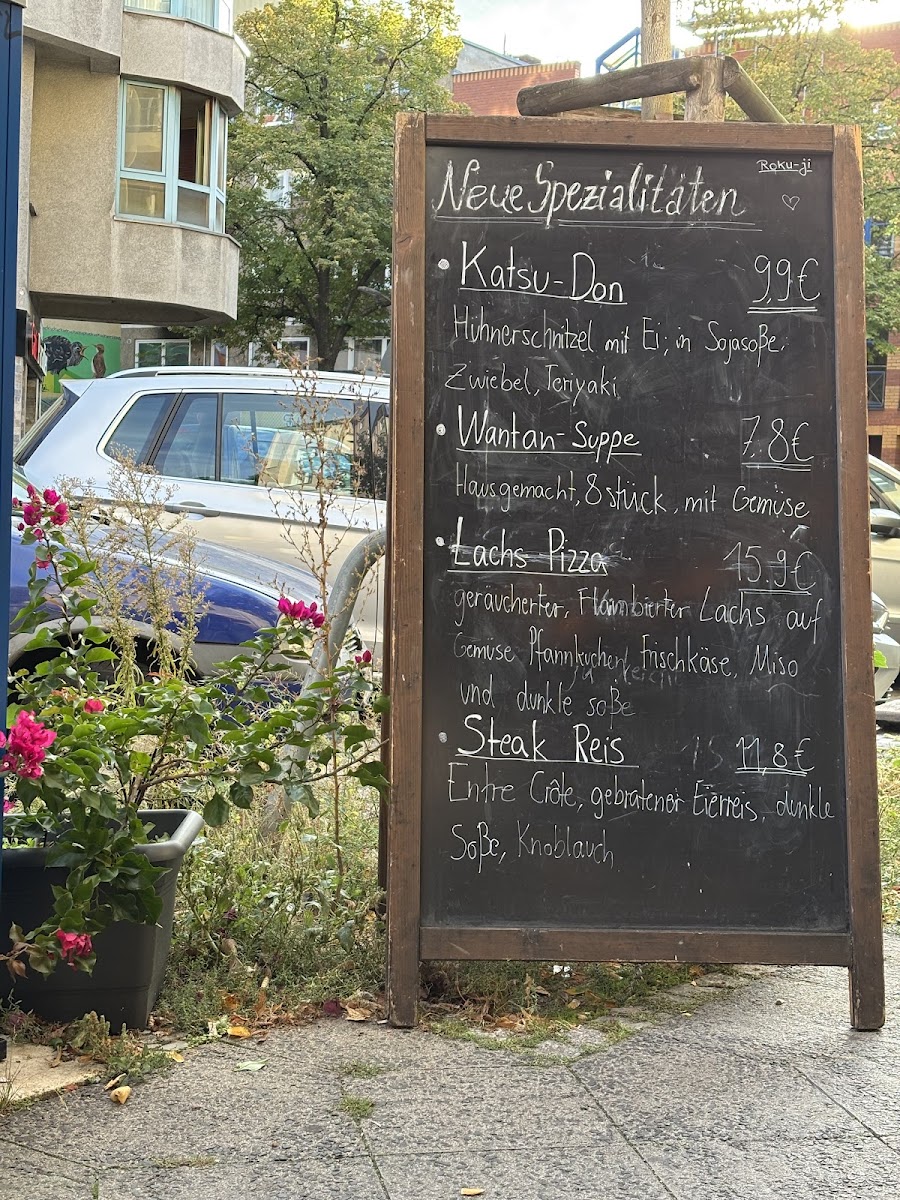 Roku-ji
Neue Spezialitäten
Katsu-Don 9,9€
Hühnerschnitzel mit Ei; in Sojasoße,
Zwiebel, Teriyaki
Wantan-Suppe 7.8€
Hausgemacht, 8 stück, mit Gemüse
Lachs Pizza 15.9€
geräucherter, Flambierter Lachs auf
Gemüse Pfannkuchen, Frischkäse, Miso
und dunkle soße
Steak Reis 11,8€
Entre Côte, gebratener Eierreis, dunkle
Soße, Knoblauch